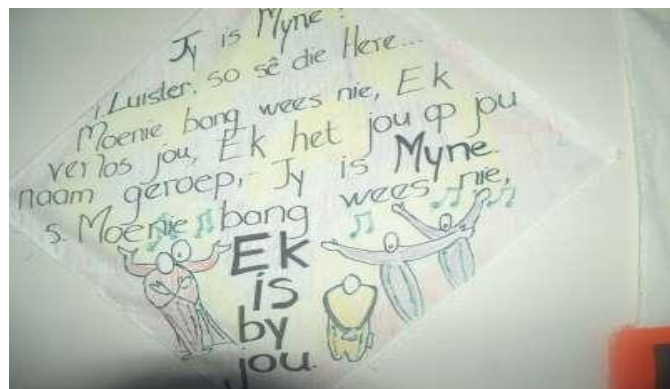 Jy is Myne!
1. Luister, so sê die Here...
Moenie bang wees nie, Ek
verlos jou, Ek het jou op jou
naam geroep,- Jy is Myne.
5. Moenie bang wees nie,
Ek
is
by
jou.